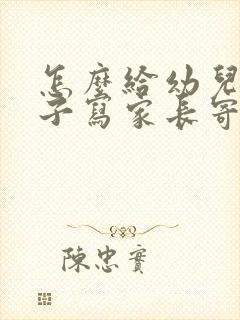 怎麼給幼兒
子寫家長寄
陳忠實